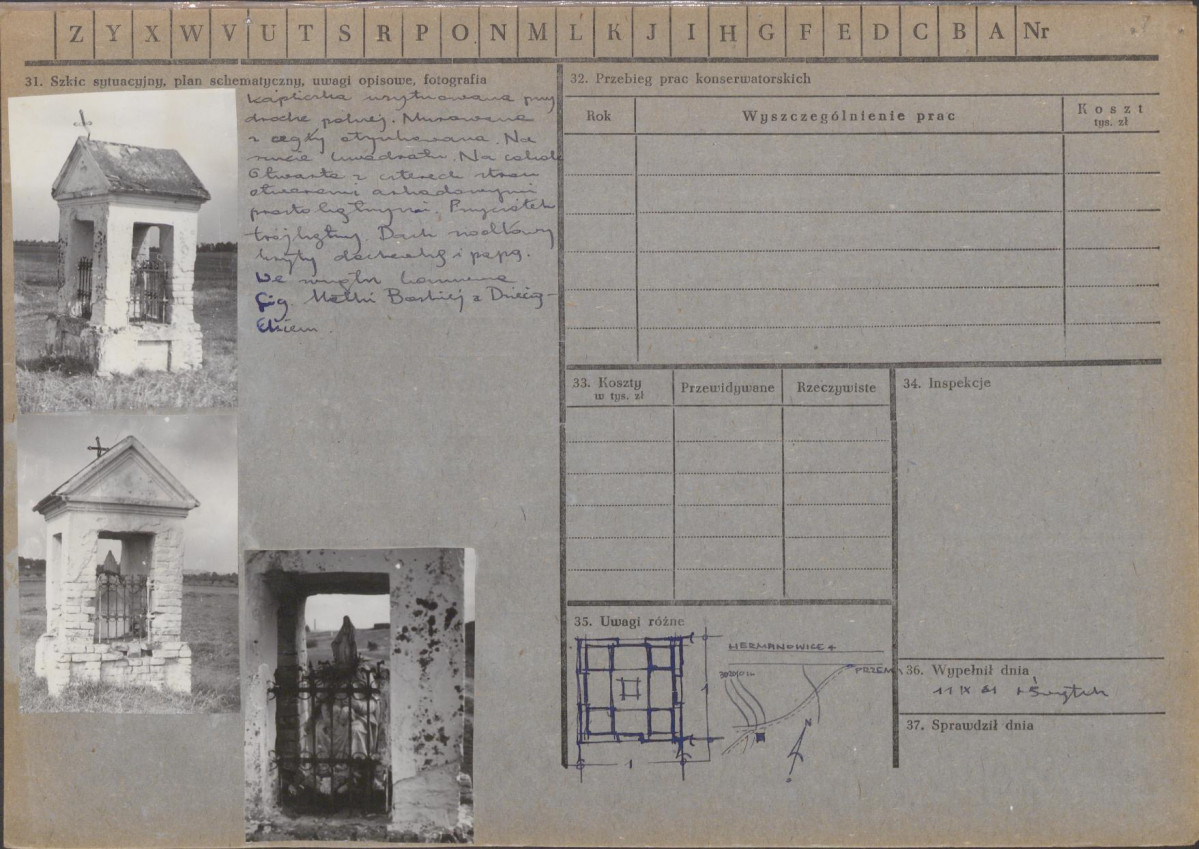 Z Y X W V U T S R P O N M L K J I H G F E D C B A Nr
31. Szkic sytuacyjny, plan schematyczny, uwagi opisowe, fotografia
Kapliczka usytuowana przy
drodze polnej. Murowana
z cegły otynkowana. Na
rzucie kwadratu. Na cokole
Otwarta z czterech stron
otworami arkadowymi
prostokątnymi. Przyczółek
trójkątny. Dach siodłowy
kryty dachówką i papą.
We wnętrz kamienna
fig. Matki Boskiej z Dzieciąt-
kiem.
32. Przebieg prac konserwatorskich
Rok
Wyszczególnienie prac
Koszt
tys. zł
33. Koszty
w tys. zł
Przewidywane
Rzeczywiste
34. Inspekcje
35. Uwagi różne
HERMANOWICE
PRZEM
N
1
1
36. Wypełnił dnia
11 IX 81
37. Sprawdził dnia